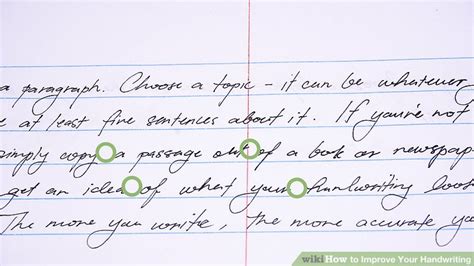 a paragraph. Choose a topic - it can be whatever
e at least five sentences about it. If you're not
simply copy a passage out of a book or newspap
get an idea of what your handwriting look
The more you write, the more accurate yo
wikiHow to Improve Your Handwriting